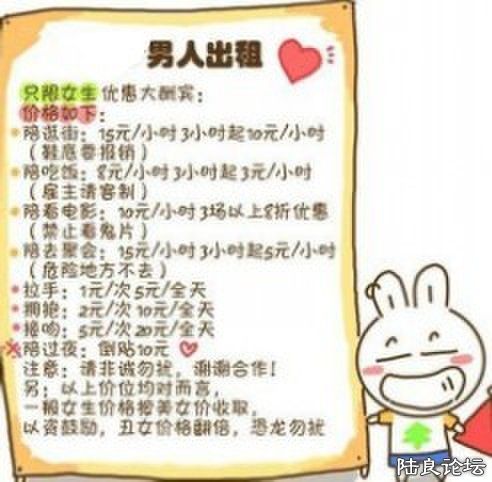 男人出租
只限女生优惠大酬宾：
价格如下：
陪逛街：15元/小时 3小时起10元/小时
（鞋底要报销）
陪吃饭：8元/小时 3小时起 3元/小时
（雇主请客制）
陪看电影：10元/小时 3场以上8折优惠
（禁止看鬼片）
陪去聚会：15元/小时 3小时起5元/小时
（危险地方不去）
拉手：1元/次 5元/全天
拥抱：2元/次 10元/全天
接吻：5元/次 20元/全天
陪过夜：倒贴10元
注意：请非诚勿扰，谢谢合作！
另：以上价位均对而言，
一般女生价格按美女价收取，
以资鼓励，丑女价格翻倍，恐龙勿扰
陆良论坛